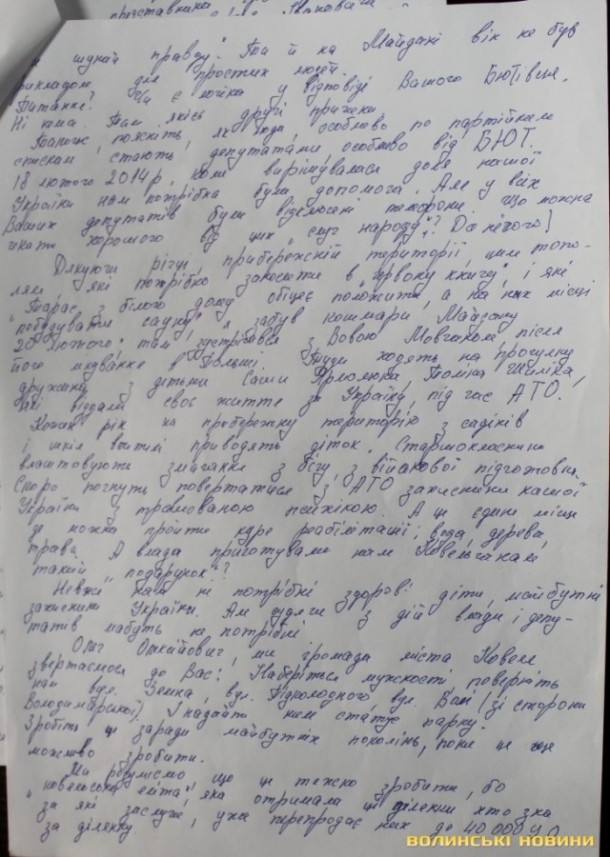 представника
й щдний правду. Та й на Майдані він не був
прикладом для простих людей.
Питання: Чи є логіка у відповіді Вашого Бютівця.
Ні чи там якісь другі причени
Поясніть, як люди, особливо по партійним
спискам стають депутатами особливо від БЮТ.
18 лютого 2014р. коли вирішувалася доля нашої
України нам потрібна була допомога. Але у всіх
Ваших депутатів були відключені телефони. Що можна
чекати хорошого від цих "слуг народу"? Да нічого!
Дякуючи річці, прибережній території, цим топо-
лям які потрібно заносити в "червону книгу", і які
"Тарас з білого дому обіцяє положити, а на їх місці
побудувати сауну" я забув кошмари Майдану
20 лютого, там зустрівся з Вовою Мовчаном після
його лікування в Польщі. Туди ходять на прогулку
дружини з дітьми Саши
які віддали своє життя за Україну, під час АТО.
Кожен рік на прибережну територію з садіків
і шкіл вчителі приводять діток. Старшокласники
влаштовують змагання з бігу, з військової підготовки.
Скоро почнуть повертатися з АТО захисники нашої
України з травмованою психікою. А це єдине місце
де можна пройти курс реабілітації; вода, дерева,
трава. А влада приготувала нам Ковельчанам
такий "подарунок"?
Невжі нам не потрібні здорові діти, майбутні
захисники України. Але судячи з дій влади і депу-
татів мабуть не потрібні
Олег ми громада міста Ковеля
звертаємося до Вас: Наберіться мужності поверніть
нам вул. вул. вул. (зі сторони
Володимирської). І надайте йому статус парку.
Зробіть це заради майбутніх поколінь, поки це ще
можливо зробити.
Ми розуміємо, що це тяжко зробити, бо
"ковельська еліта", яка отримала ці ділянки хто зна
за які заслуги, уже перепродає їх до 40 000 у.о
за ділянку.
ВОЛИНСЬКІ НОВИНИ